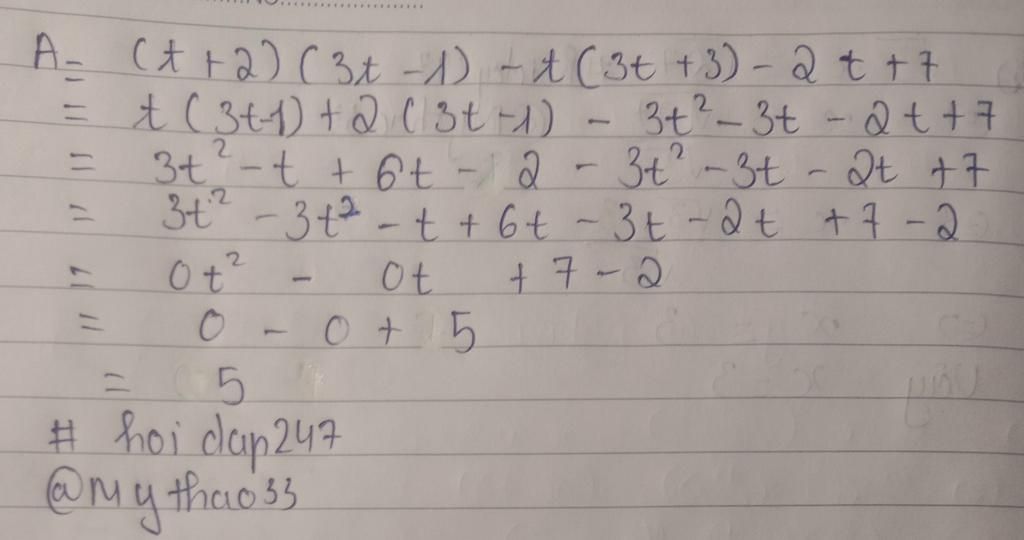 A = (t + 2) (3t - 1) - t (3t + 3) - 2 t + 7
= t (3t-1) + 2 (3t - 1) - 3t² - 3t - 2t + 7
= 3t² - t + 6t - 2 - 3t² - 3t - 2t + 7
= 3t² - 3t² - t + 6t - 3t - 2t + 7 - 2
= 0t² - 0t + 7 - 2
= 0 - 0 + 5
= 5
# hoi dap247
@mythao33